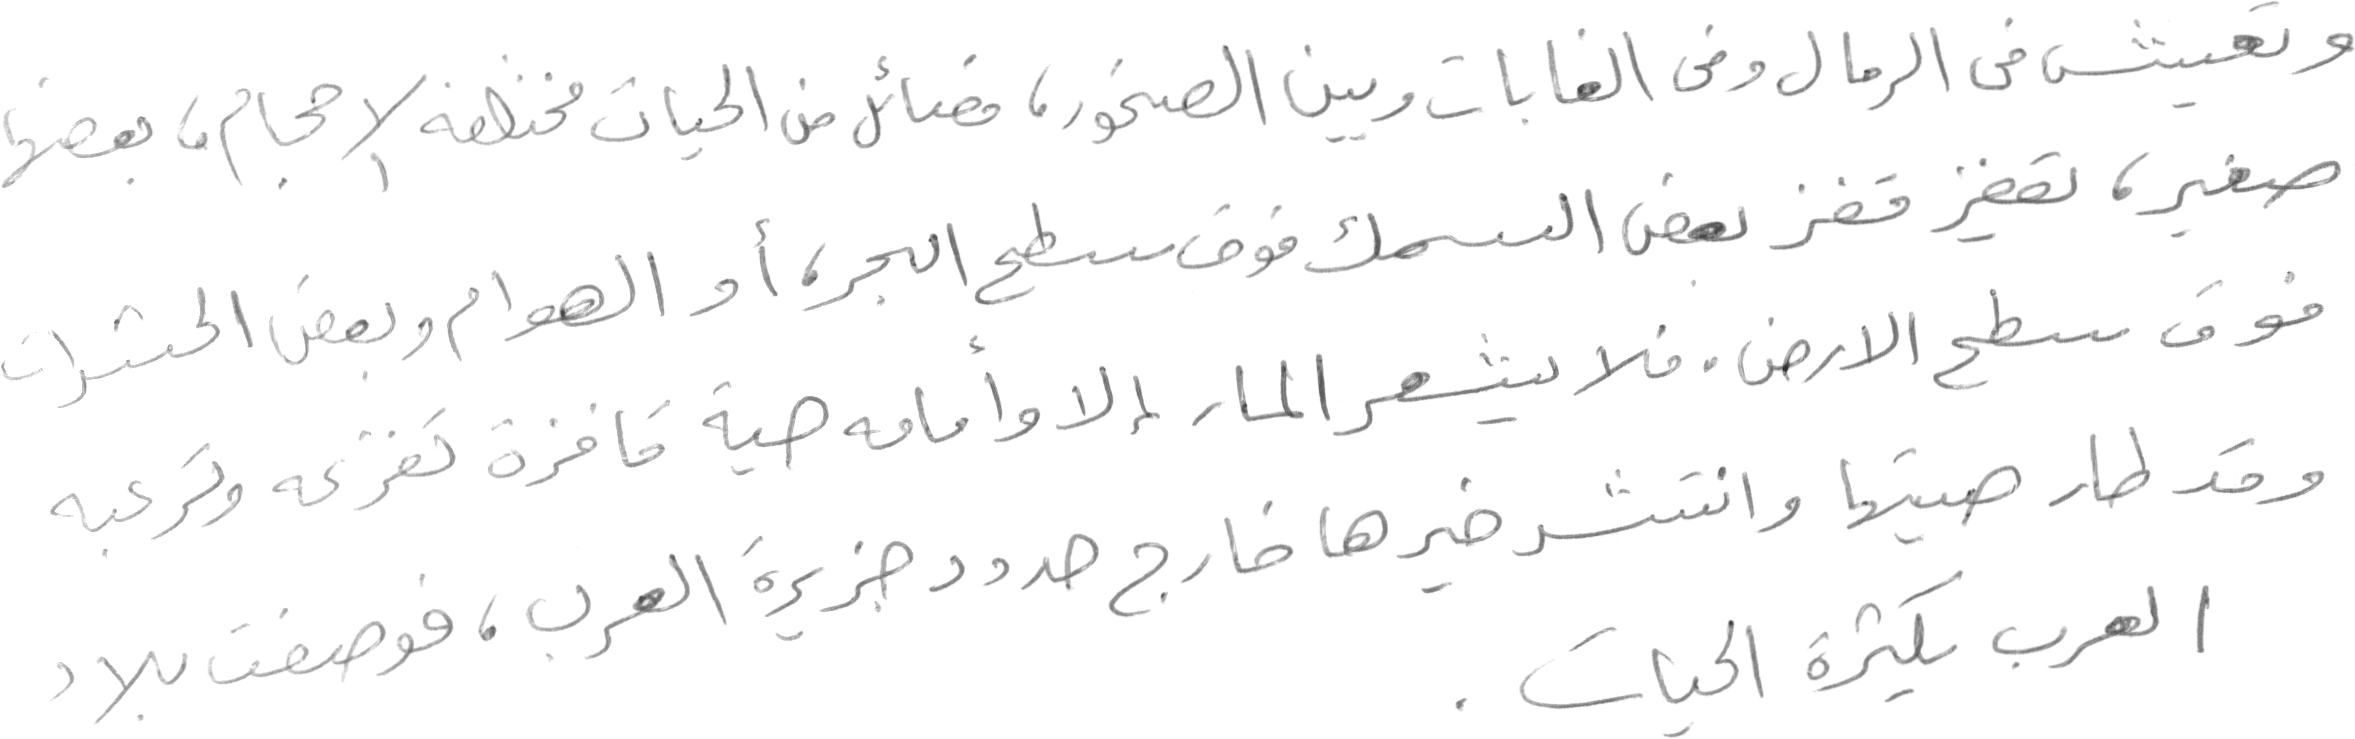 وتعيش فى الرمال وفى الغابات وبين الصخور، فصائل من الحيات مختلفة الاحجام، بعضها
صغير، تقفز قفز بعض السمك فوق سطح البحر، أو الهوام وبعض الحشرات
فوق سطح الارض. فلا يشعر المار إلا وأمامه حية قافزة تفزعه وترعبه
وقد طار صيتها وانتشر خبرها خارج حدود جزيرة العرب، فوصفت بلاد
العرب بكثرة الحيات.